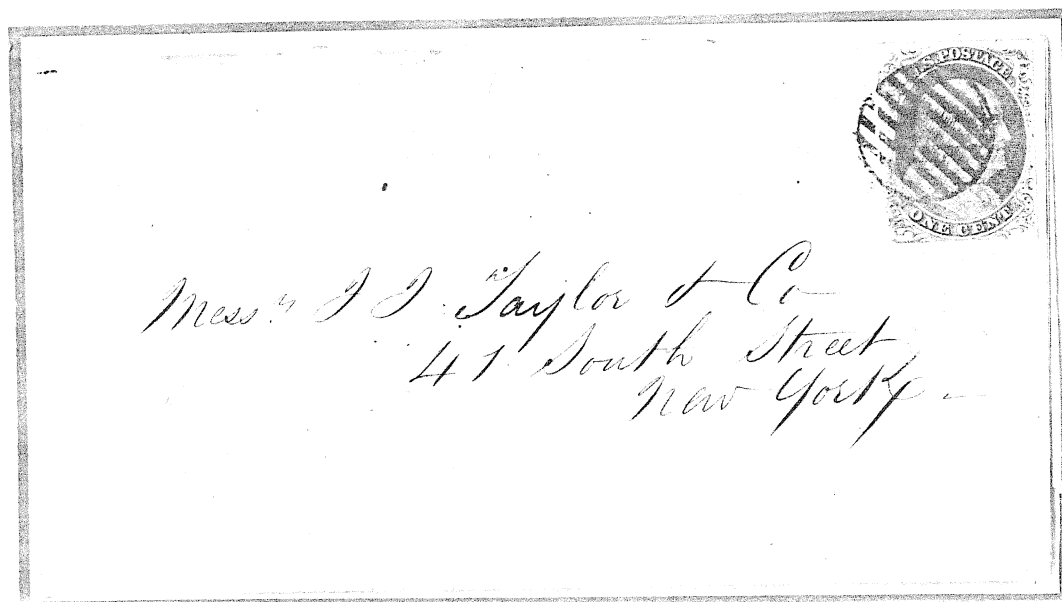 U.S. POSTAGE
ONE CENT
Messrs J J Taylor & Co
41 South Street
New York